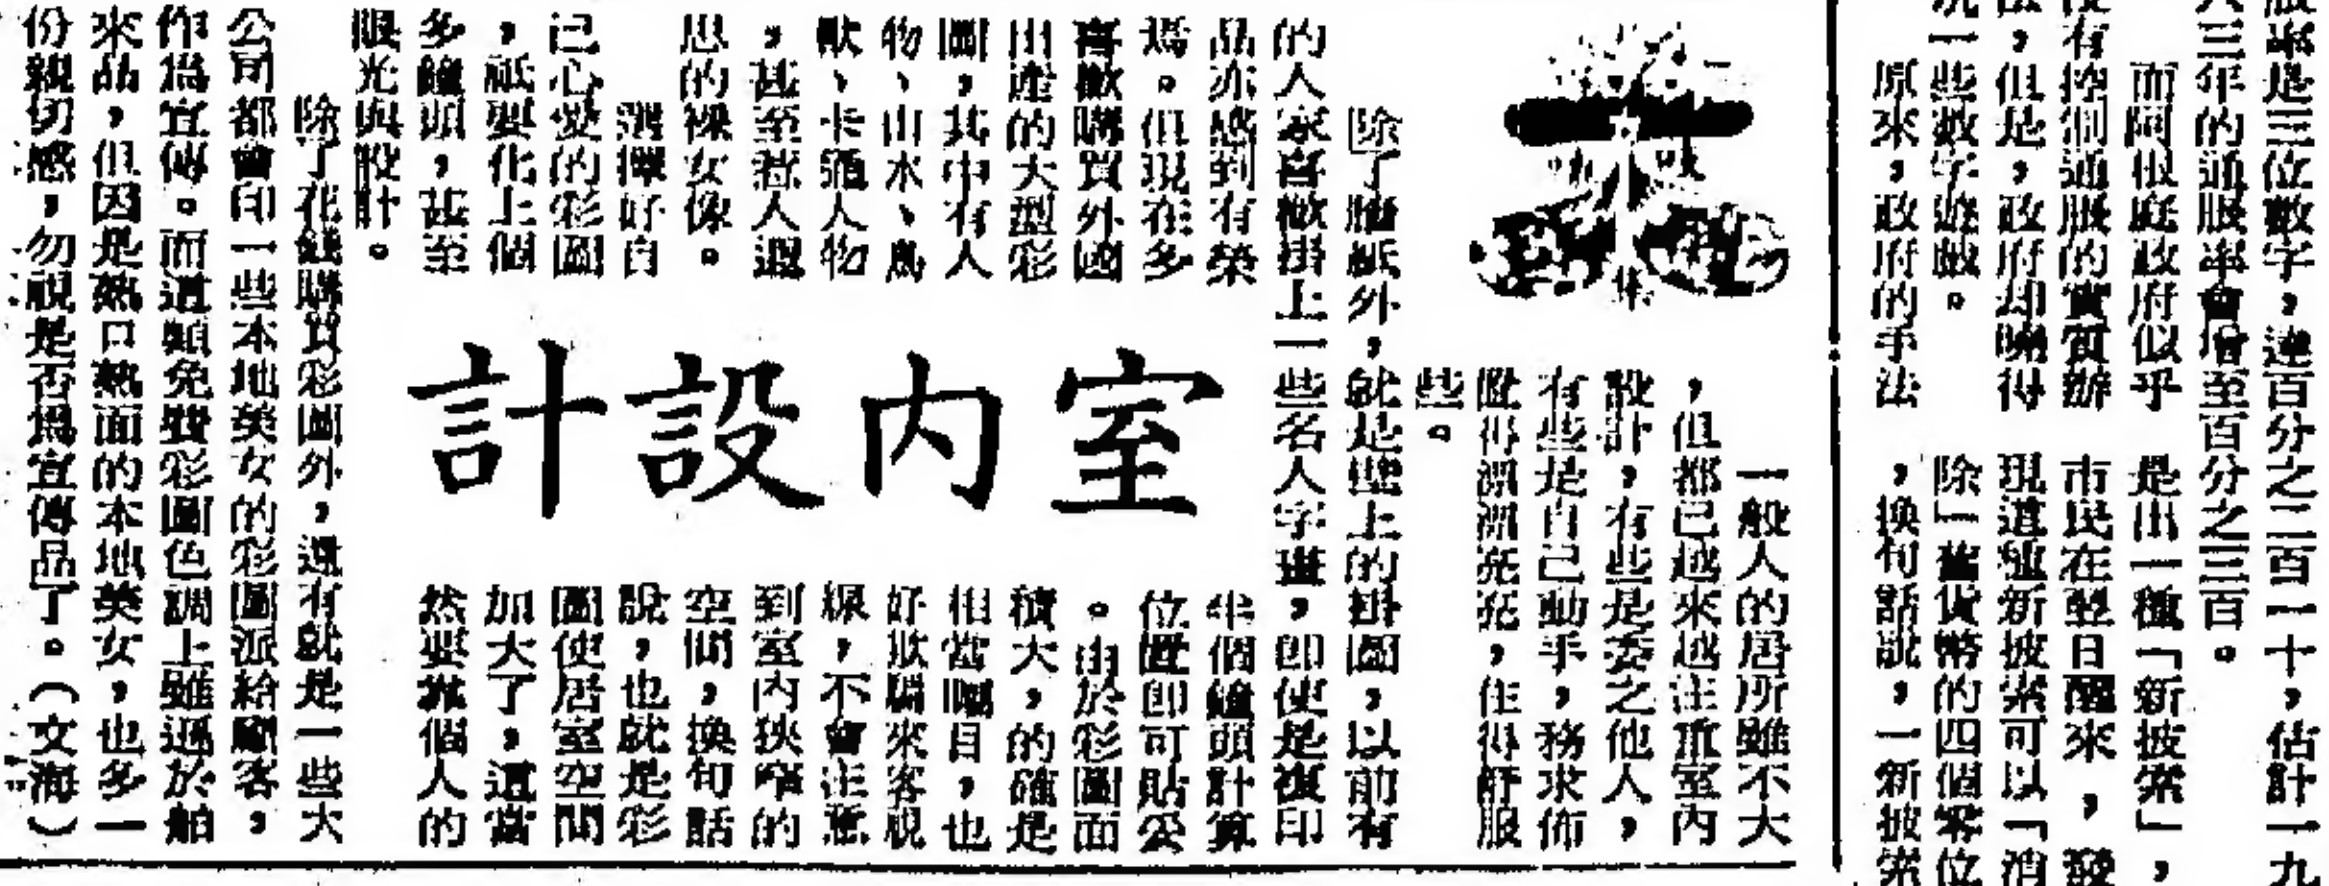 脹率是三位數字，達百分之二百一十，估計一九
八三年的通脹率會增至百分之三百。
而阿根庭政府似乎
沒有控制通脹的實質辦
法，但是，政府却曉得
玩一些數字遊戲。
原來，政府的手法
是出一種「新披索」，
市民在翌日醒來，發
現這種新披索可以「消
除」舊貨幣的四個零位
，換句話說，一新披索
室內設計
一般人的居所雖不大
，但都已越來越注重室內
設計，有些是委之他人，
有些是自己動手，務求佈
置得漂漂亮亮，住得舒服
些。
除了牆紙外，就是壁上的掛圖，以前有
的人家喜歡掛上一些名人字畫，即使是復印
品亦感到有榮
焉。但現在多
喜歡購買外國
出產的大型彩
圖，其中有人
物、山水、鳥
獸、卡通人物
，甚至惹人遐
思的裸女像。
選擇好自
己心愛的彩圖
，祗要化上個
多鐘頭，甚至
半個鐘頭計算
位置即可貼妥
。由於彩圖面
積大，的確是
相當矚目，也
好欺騙來客視
線，不會注意
到室內狹窄的
空間，換句話
說，也就是彩
圖使居室空間
加大了，這當
然要靠個人的
眼光與設計。
除了花錢購買彩圖外，還有就是一些大
公司都會印一些本地美女的彩圖派給顧客，
作為宣傳。而這類免費彩圖色調上雖遜於舶
來品，但因是熟口熟面的本地美女，也多一
份親切感，勿視是否為宣傳品了。（文海）